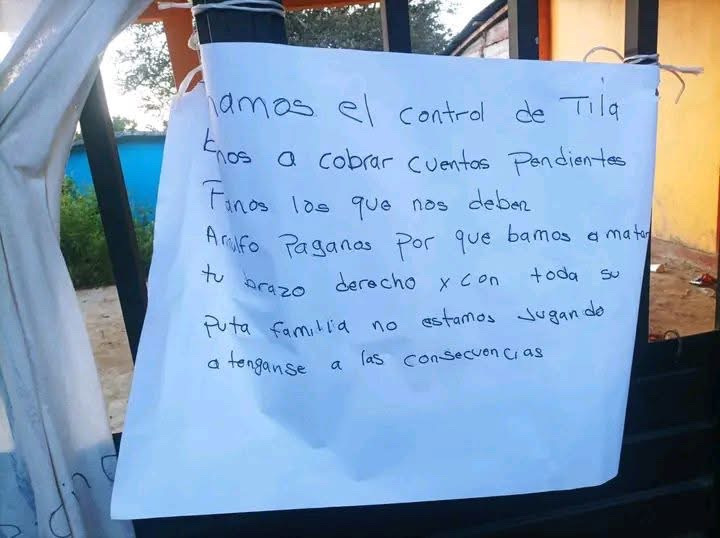 amos el control de Tila
nos a cobrar cuentas Pendientes
Fanos los que nos deben
Arnulfo Paganos Por que bamos a matar
tu brazo derecho x con toda su
Puta familia no estamos Jugando
atenganse a las consecuencias